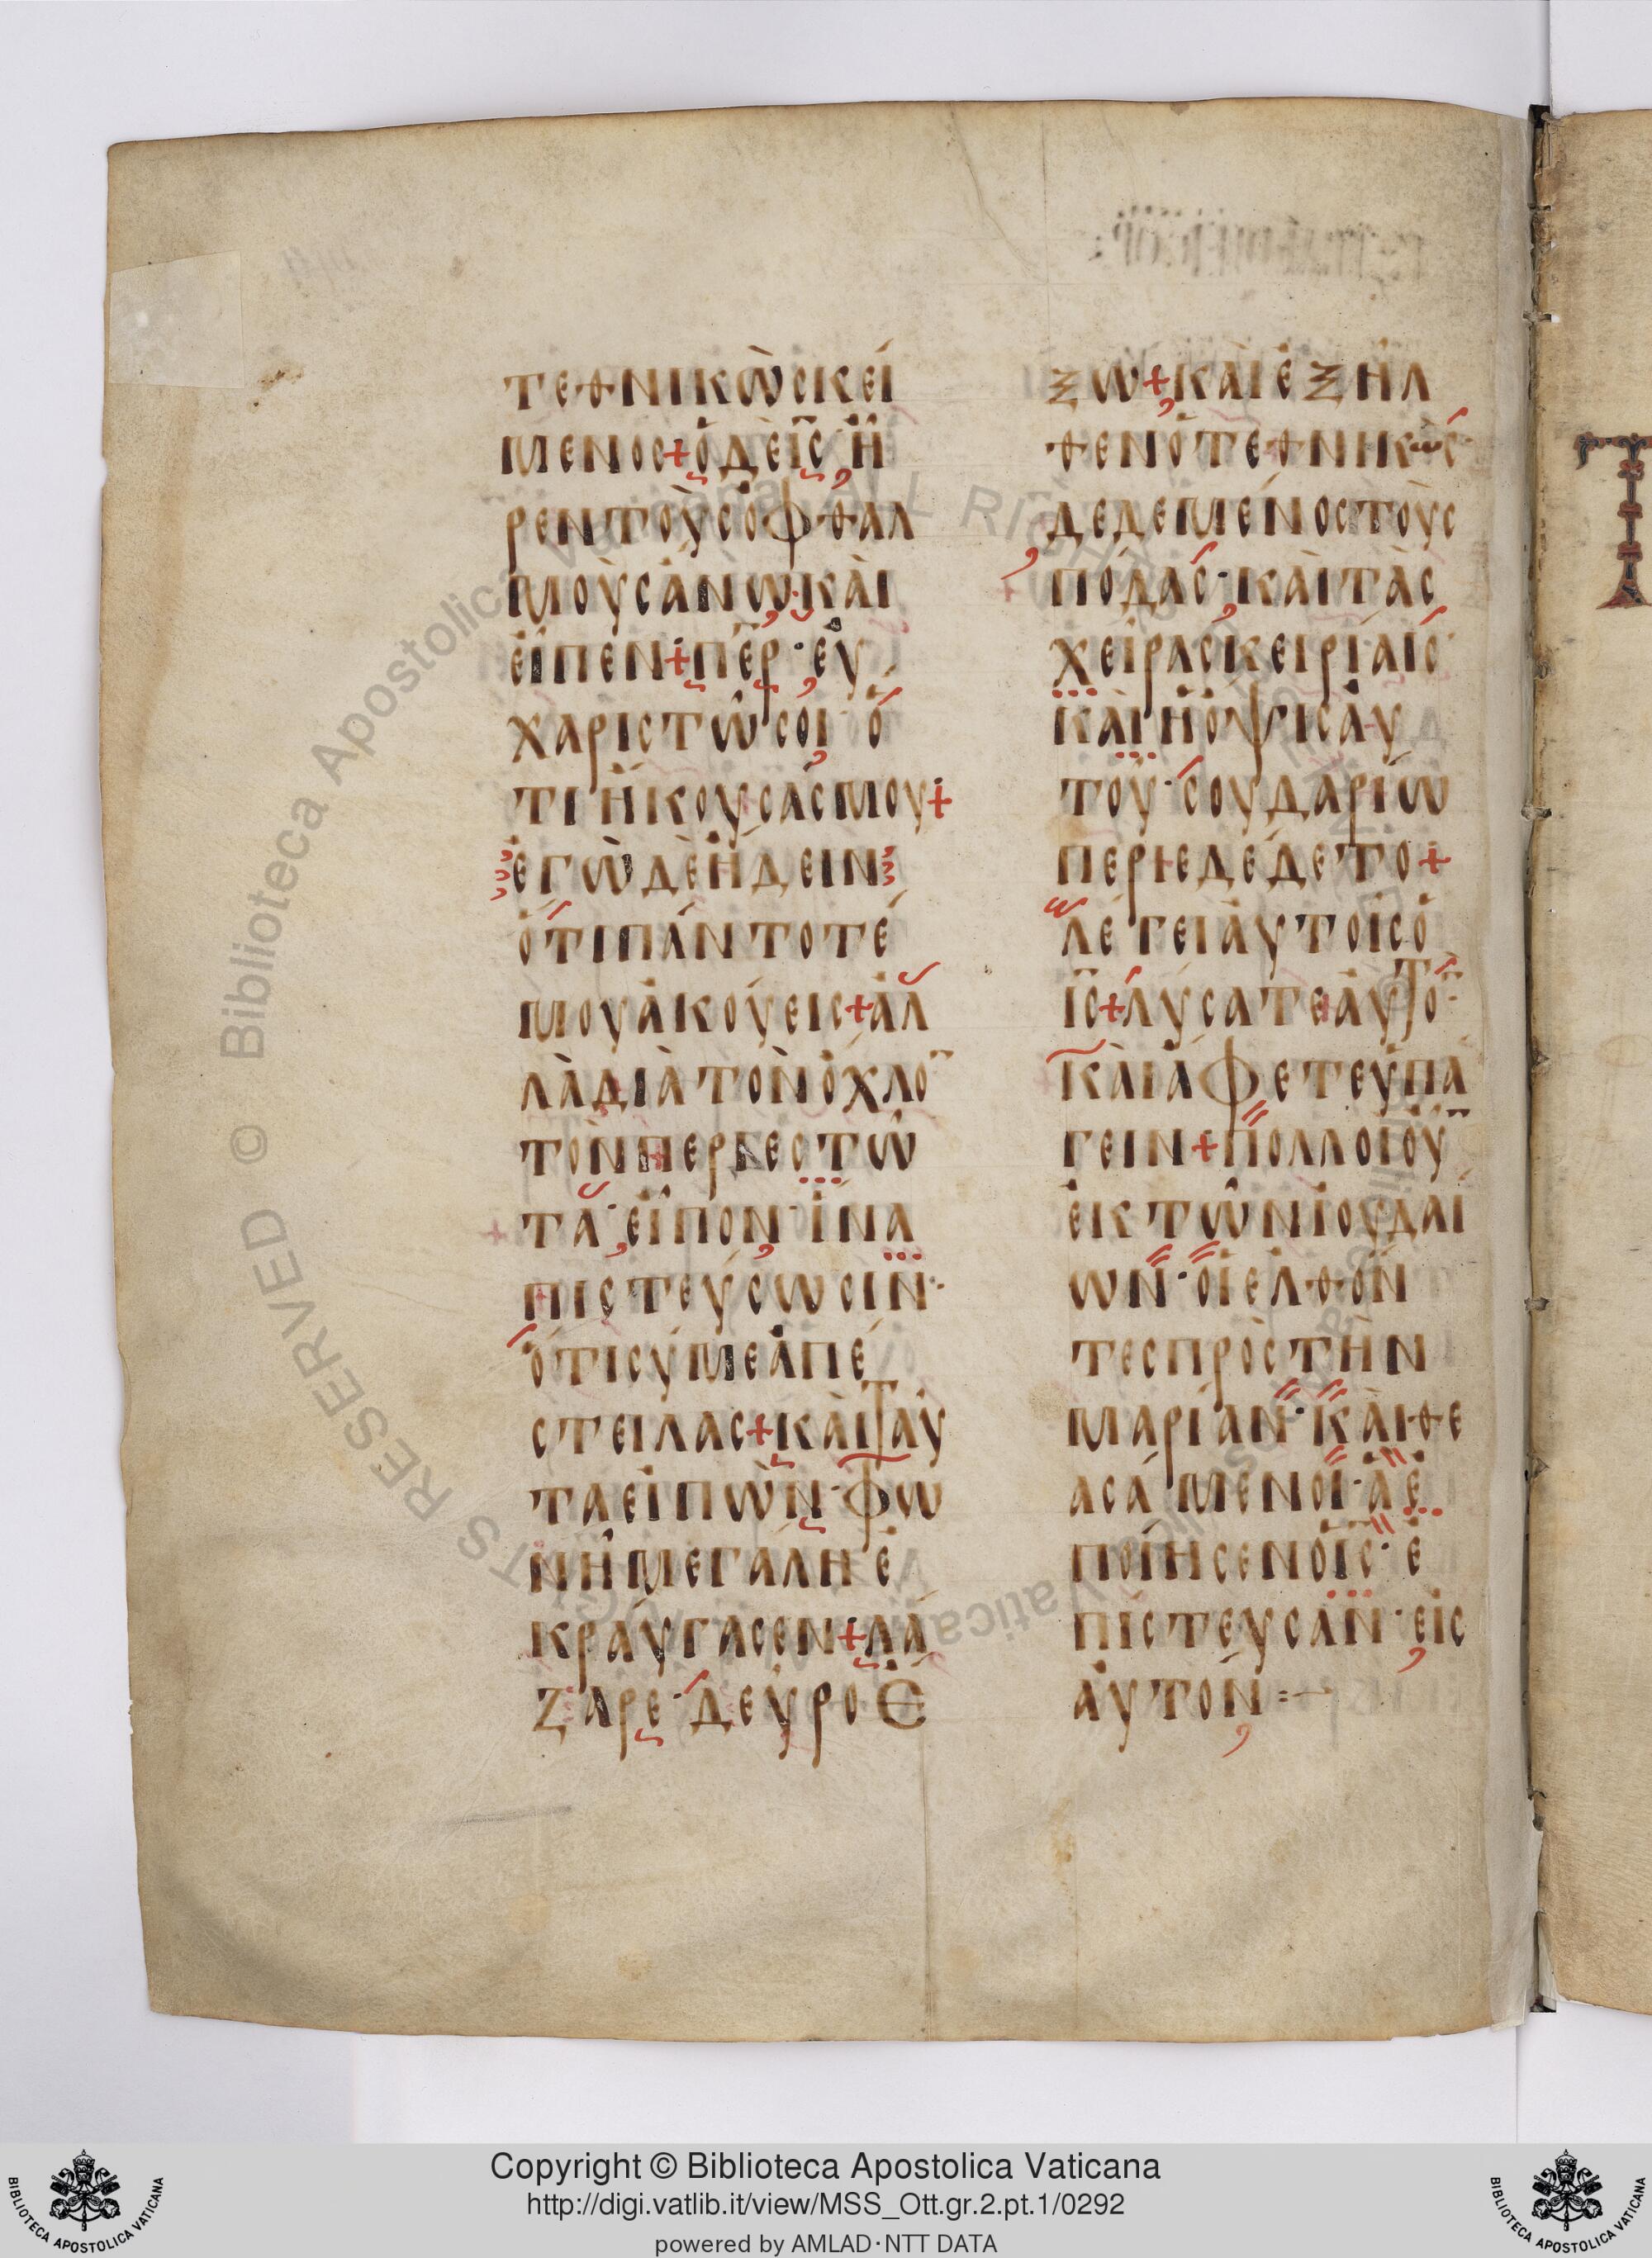 τεθνικὼς κεί
μενος + ὁ δὲ ι̅ς̅ ἦ
ρεν τοὺς ὀφθαλ
μοὺς ἄνω· καὶ
εἶπεν + π̅ε̅ρ̅· εὐ
χαριστῶ σοι ὅ
τι ἤκουσάς μου +
ἐγὼ δὲ ἤδειν
ὅτι πάντοτέ
μου ἀκούεις + ἀλ
λὰ διὰ τὸν ὄχλο̅
τὸν περιεστῶ
τα· εἶπον· ἵνα
πιστεύσωσιν·
ὅτι σύ με ἀπέ
στειλας + καὶ ταῦ
τα εἰπὼν· φω
νῆ μεγάλη ἐ
κραύγασεν + λά
ζαρε· δεῦρο ἔ
ξω + καὶ ἐξῆλ
θεν ὁ τεθνηκὼς
δεδεμένος τοὺς
πόδας· καὶ τὰς
χεῖρας κειρίαις
καὶ ἡ ὄψις αὐ
τοῦ· σουδαρίω
περιεδέδετο +
λέγει αὐτοῖς ὁ
ι̅ς̅ + λύσατε αὐτὸ̅·
καὶ ἄφετε ὑπά
γειν + πολλοὶ οὖ̅
ἐκ τῶν ἰουδαί
ων· οἱ ἐλθόν
τες πρὸς τὴν
μαρίαν· καὶ θε
ασάμενοι· ἃ ἐ
ποίησεν ὁ ι̅ς̅· ἐ
πίστευσαν· εἰς
αὐτόν =
© Biblioteca Apostolica Vaticana ALL RIGHTS RESERVED
Copyright © Biblioteca Apostolica Vaticana
http://digi.vatlib.it/view/MSS_Ott.gr.2.pt.1/0292
powered by AMLAD·NTT DATA
BIBLIOTECA APOSTOLICA VATICANA
BIBLIOTECA APOSTOLICA VATICANA